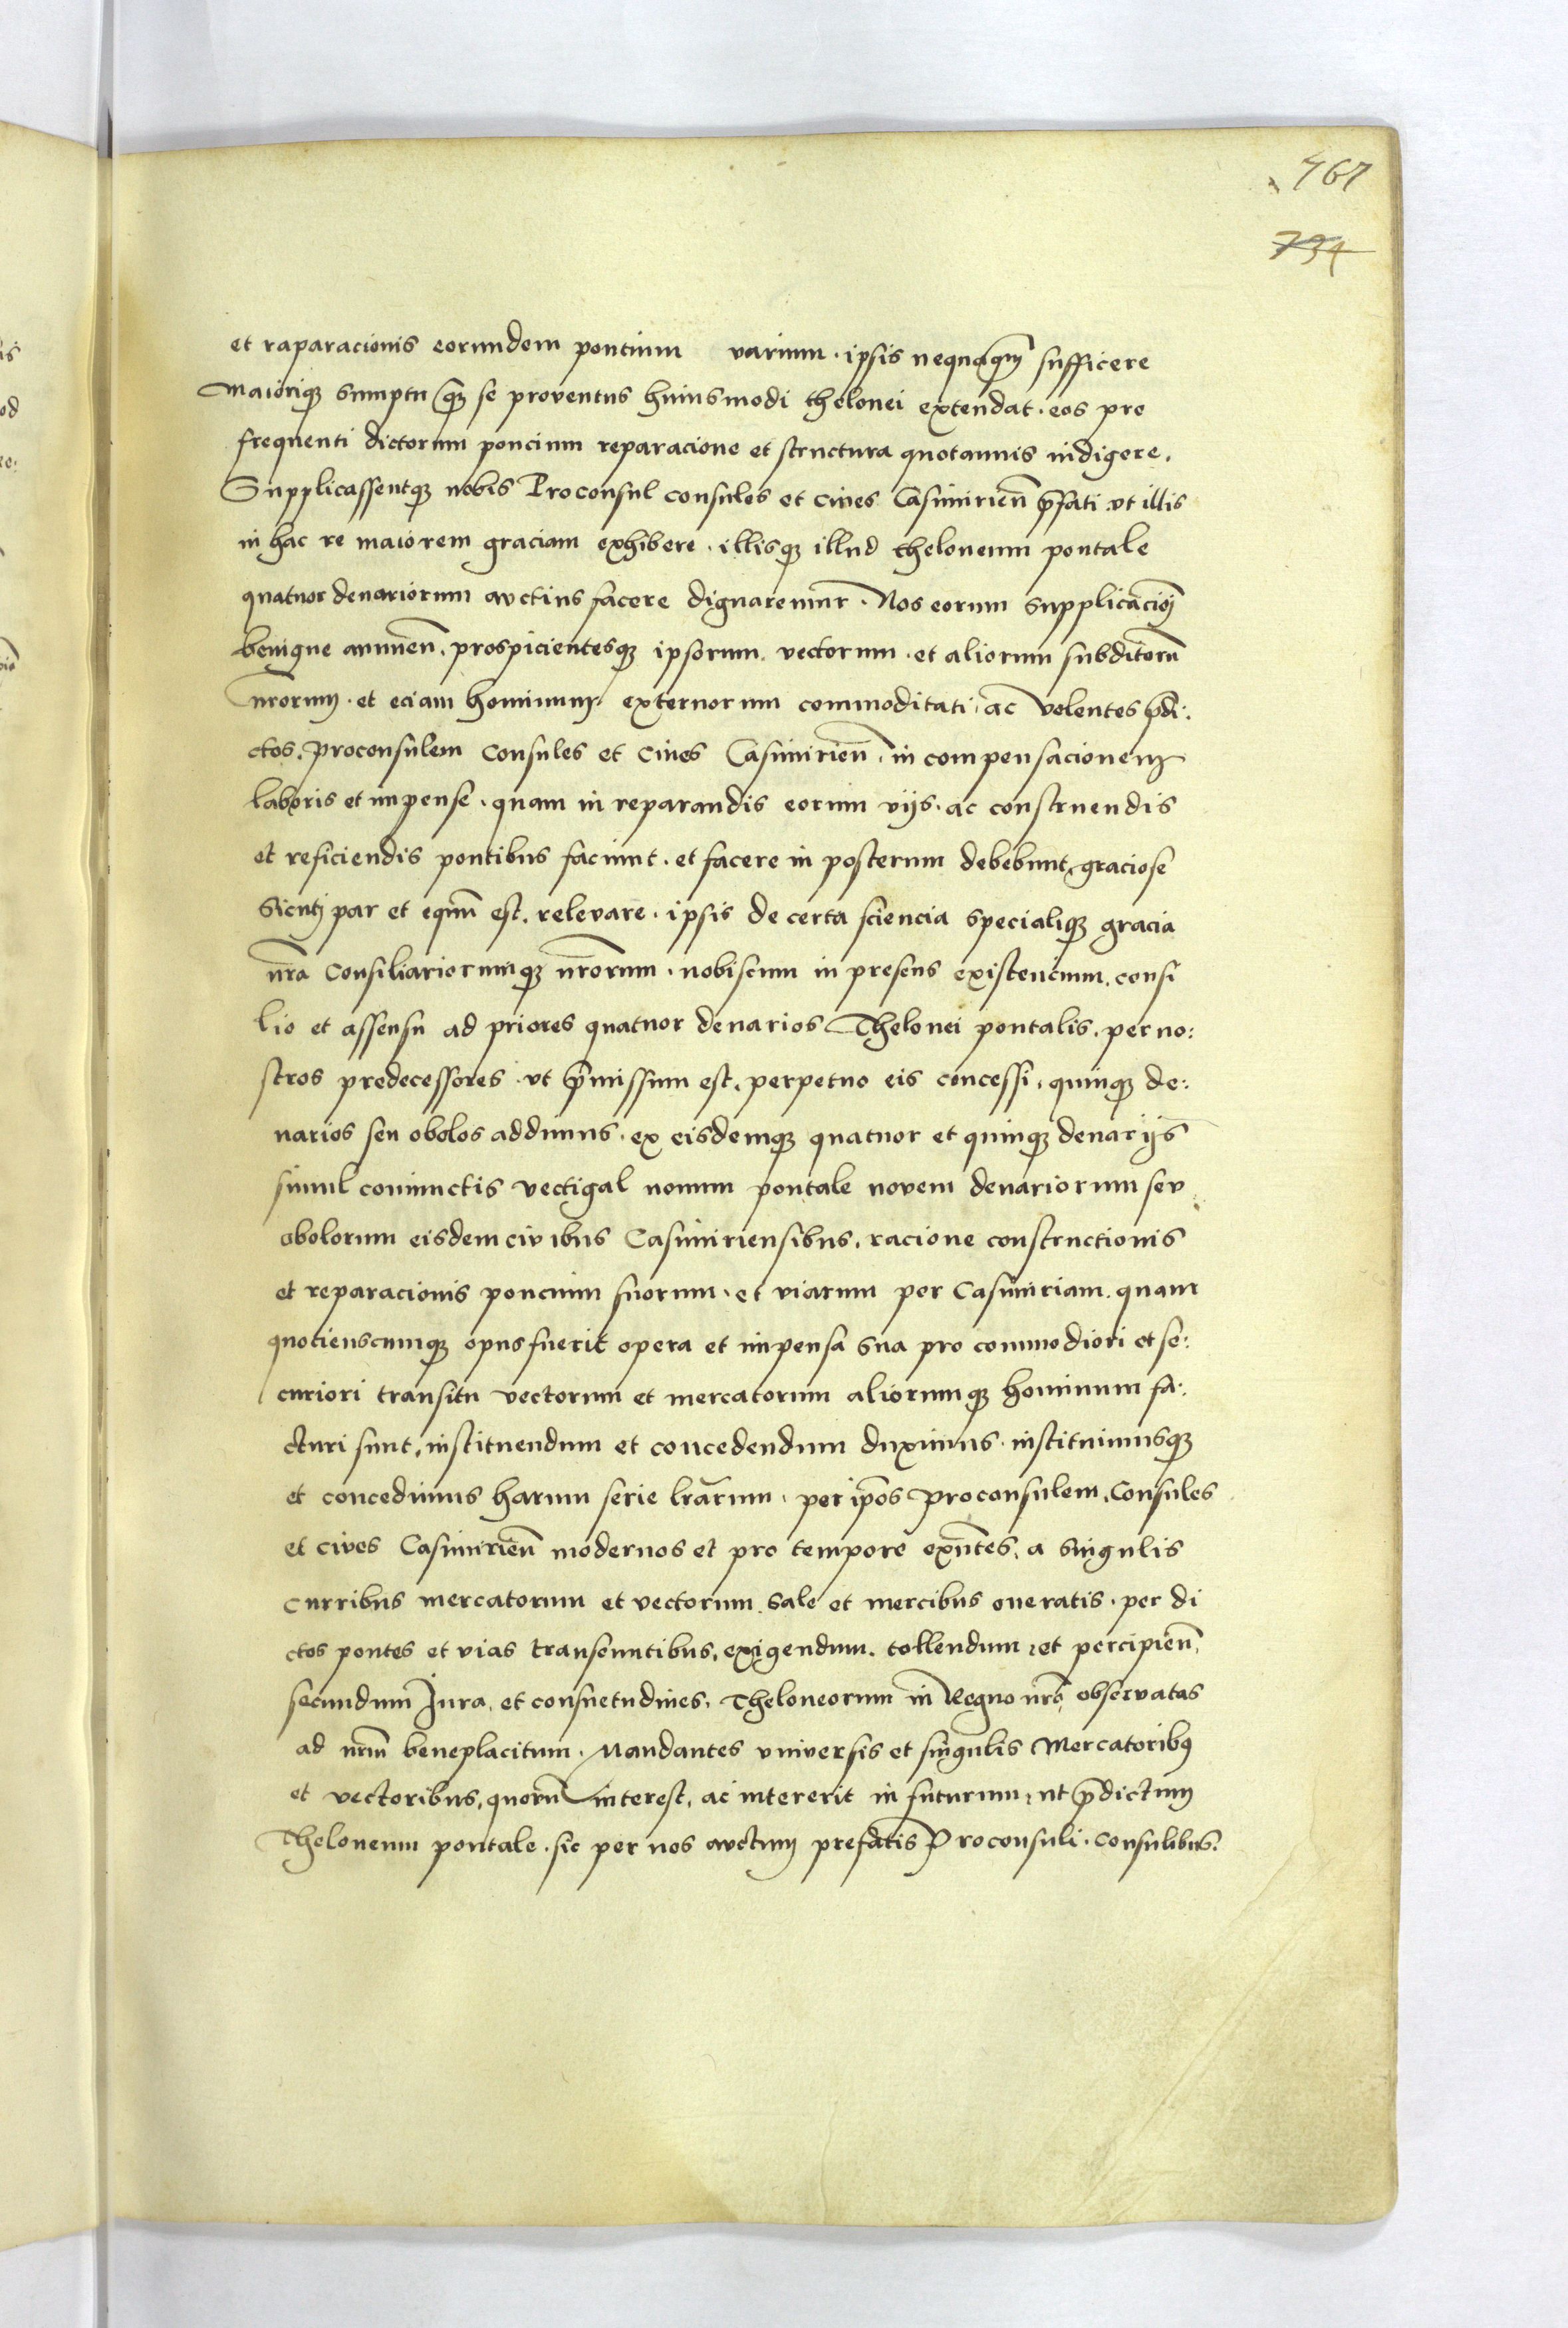 467
734
et raparacionis eorundem pontium varium · ipsis nequaq̃ sufficere
maioriq₃ sumptu q̃ se proventus huiusmodi thelonei extendat · eos pro
frequenti dictorum poncium reparacione et structura quotannis indigere.
Supplicassentq₃ nobis Proconsul consules et cives Casimirien̄ p̄fati ut illis
in hac re maiorem graciam exhibere · illisq₃ illud theloneum pontale
quatuor denariorum auctius facere dignaremur̄ · Nos eorum supplicacionj
benigne annuen̄ · prospicientesq₃ ipsorum vectorum · et aliorum subditorū
nrorum · et eciam hominum externorum commoditati, ac volentes p̄di:
ctos, proconsulem consules et cives Casimirien̄, in compensacionem
laboris et impense · quam in reparandis eorum viis · ac construendis
et reficiendis pontibus faciunt · et facere in posterum debebunt, graciose
sicutj par et equū est, relevare · ipsis de certa sciencia specialiq₃ gracia
nr̄a Consiliariorumq₃ nr̄orum · nobiscum in presens existencium, consi
lio et assensu ad priores quatuor denarios Thelonei pontalis, per no:
stros predecessores · ut p̄missum est, perpetuo eis concessi, quinq₃ de:
narios seu obolos addimus · ex eisdemq₃ quatuor et quinq₃ denarijs
simul coniunctis vectigal novum pontale novem denariorum seu
obolorum eisdem civibus Casimiriensibus, racione constructionis
et reparacionis poncium suorum · et viarum per Casimiriam, quam
quotienscumq₃ opus fuerit opera et impensa sua pro commodiori et se:
curiori transitu vectorum et mercatorum aliorumq₃ hominum fa:
cturi sunt, instituendum et concedendum duximus · instituimusq₃
et concedimus harum serie lrārum · per ip̄os proconsulem, Consules
et cives Casimirien̄ modernos et pro tempore exn̄tes, a singulis
curribus mercatorum et vectorum sale et mercibus oneratis · per di
ctos pontes et vias transeuntibus, exigendum, tollendum et percipien̄,
secundum Jura, et consuetudines, Theloneorum in Regno nrō observatas
ad nrm̄ beneplacitum · Mandantes universis et singulis Mercatoribus
et vectoribus, quorū interest, ac intererit in futurum, ut p̄dictum
Theloneum pontale · sic per nos auctum prefatis Proconsuli · consulibus.